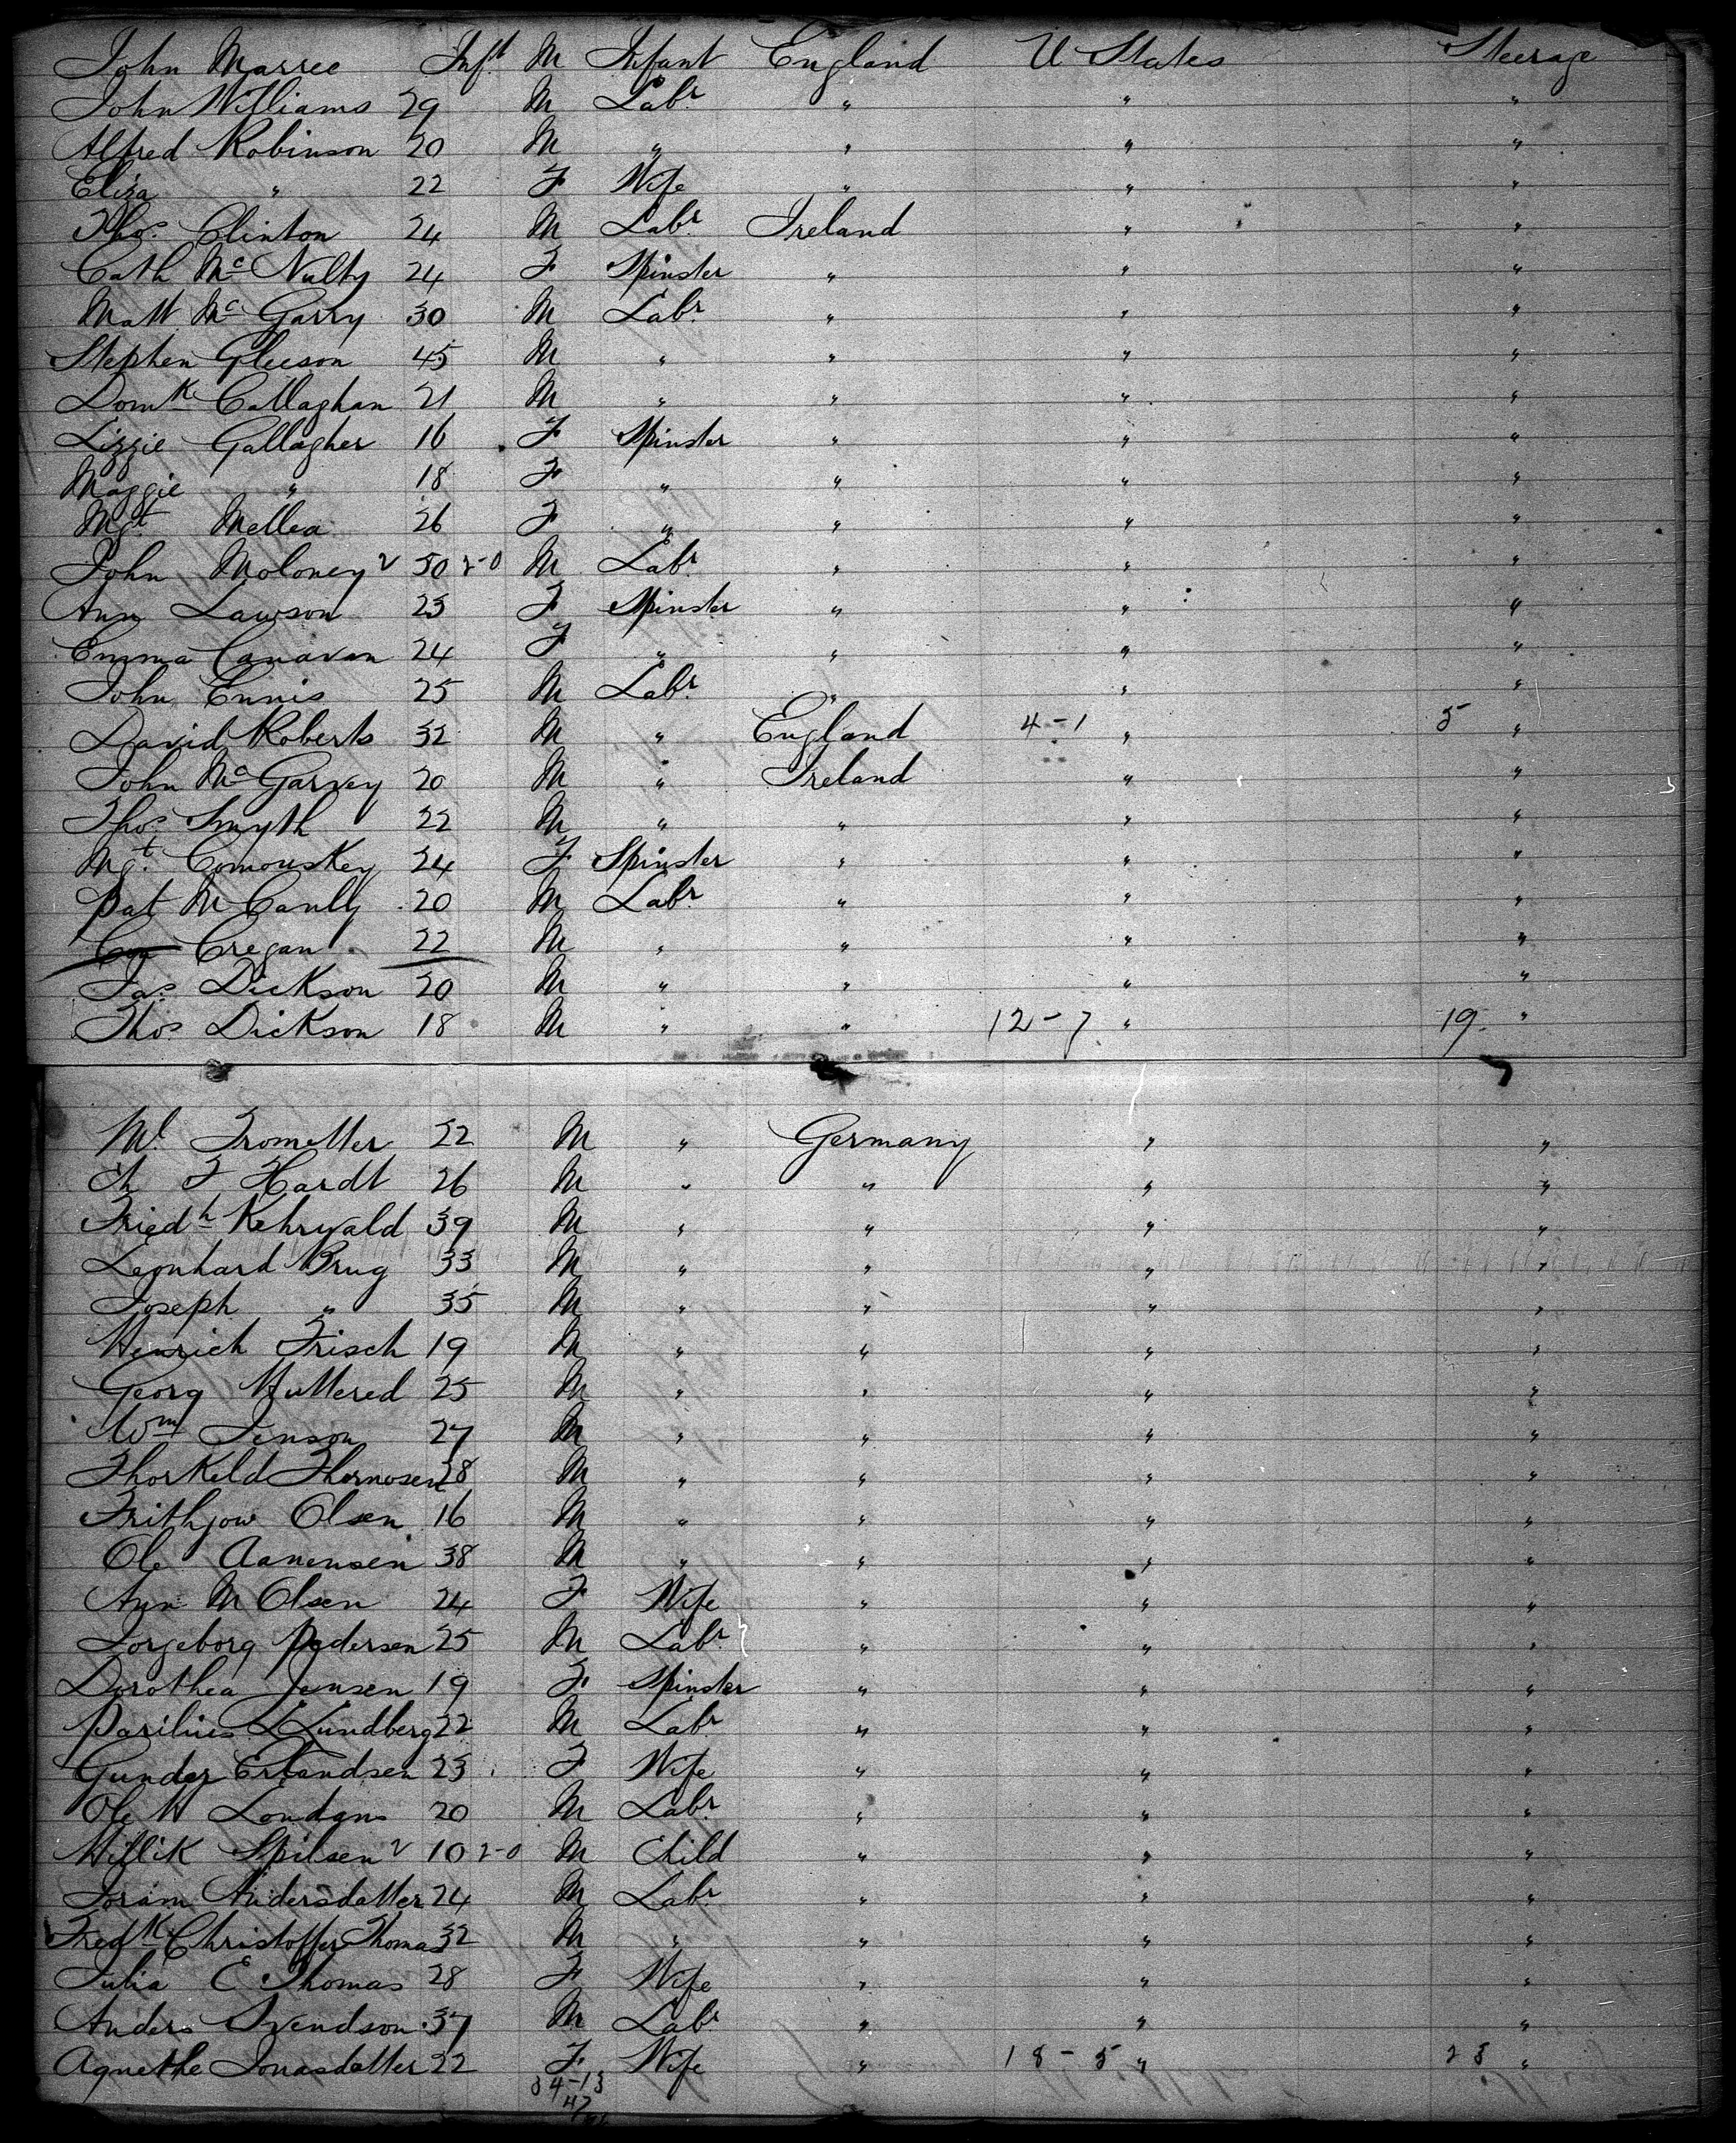 John Marree Inft M Infant England U States Steerage
John Williams 29 M Labr " " "
Alfred Robinson 20 M " " " "
Eliza " 22 F Wife " " "
Thos. Clinton 24 M Labr Ireland " "
Cath Mc Nulty 24 F Spinster " " "
Matt Mc Garry 30 M Labr " " "
Stephen Gleeson 45 M " " " "
Domk Callaghan 21 M " " " "
Lizzie Gallagher 16 F Spinster " " "
Maggie " 18 F " " " "
Mgt. Mellea 26 F " " " "
John Moloney 2 50 2-0 M Labr " " "
Ann Lawson 23 F Spinster " " "
Emma Canavan 24 F " " " "
John Ennis 25 M Labr " " "
David Roberts 32 M " England 4-1 " 5 "
John Mc Garvey 20 M " Ireland " "
Thos. Smyth 22 M " " " "
Mgt. Comouskey 24 F Spinster " " "
Pat McCanly 20 M Labr " " "
Cregan 22 M " " " "
Jas. Dickson 20 M " " " "
Thos. Dickson 18 M " " 12-7 " 19 "
Ml Trometter 22 M " Germany " "
Ch F Hardt 26 M " " " "
Friedh Kehrwald 39 M " " " "
Leonhard Brug 33 M " " " "
Joseph " 35 M " " " "
Heinrich Frisch 19 M " " " "
Georg Huttered 25 M " " " "
Wm Jenson 27 M " " " "
Thorkeld Thormosen 28 M " " " "
Frithjow Olsen 16 M " " " "
Ole Aanensen 38 M " " " "
Ann M Olsen 24 F Wife " " "
Torgeborg Pedersen 25 M Labr " " "
Dorothea Jensen 19 F Spinster " " "
Parilius L Lundberg 22 M Labr " " "
Gunder Erlandsen 23 F Wife " " "
Ole H Londans 20 M Labr " " "
Millik Spilsen 2 10 2-0 M Child " " "
Joram Andersdatter 24 M Labr " " "
Fredk Christoffer Thomas 32 M " " " "
Julia E Thomas 28 F Wife " " "
Anders Svendson 37 M Labr " " "
Agnethe Jonasdatter 22 F Wife " 18-5 " 23 "
34-13
47